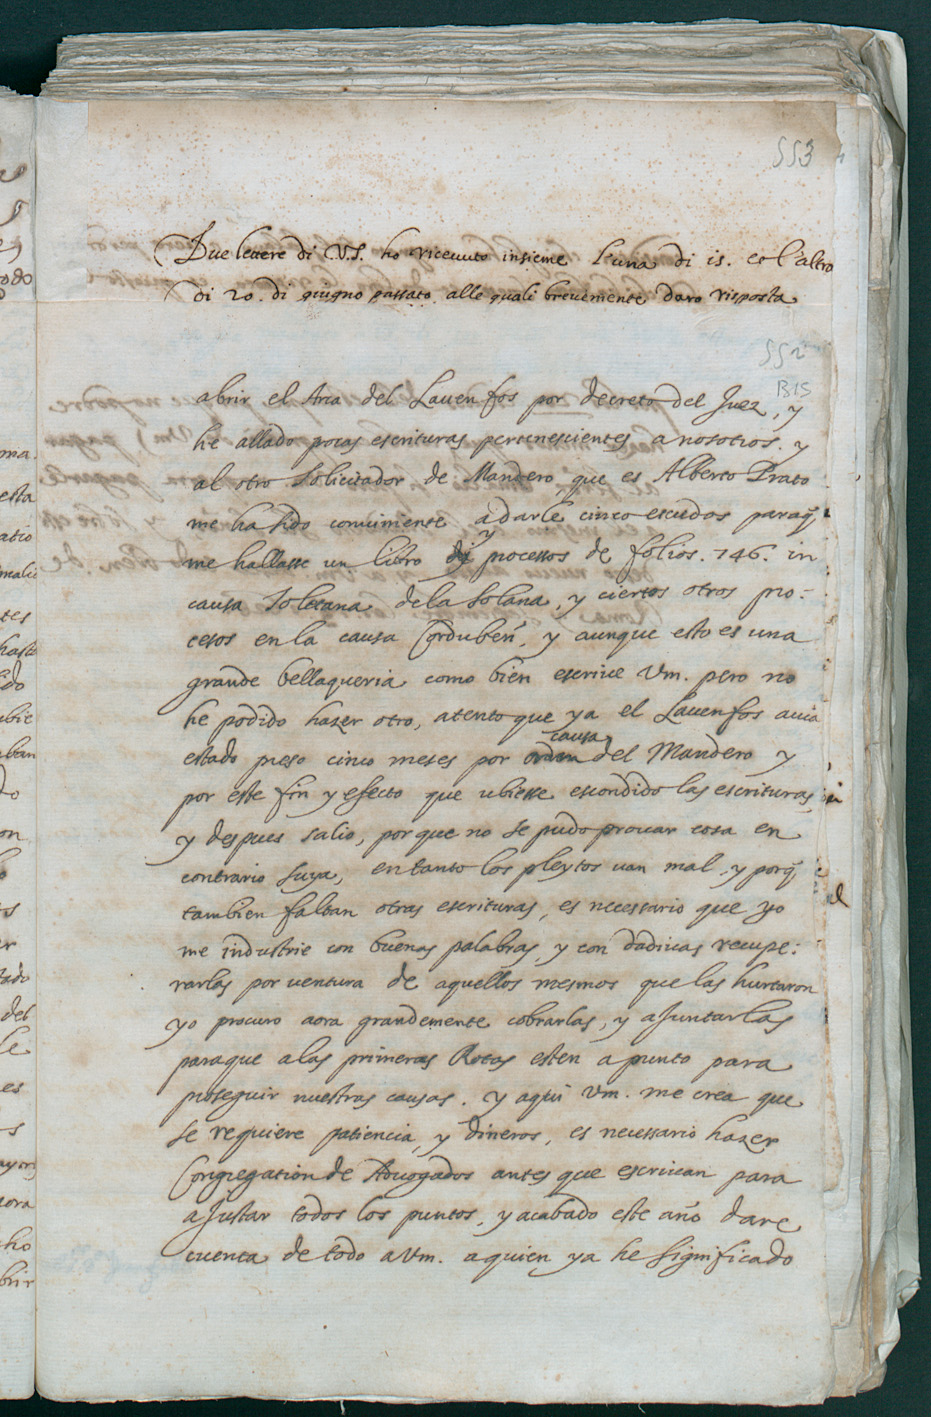 553
Due lettere di V.S. ho ricevuto insieme l'una di 15. et l'altro
di 20. di giugno passato alle quali brevemente daro risposta
552
BIS
abrir el Arca del Lauenfos por decreto del Juez, y
he allado pocas escrituras pertenescientes a nosotros. y
al otro Solicitador de Mandero, que es Alberto Prato
me ha sido conviniente a darle cinco escudos paraq̃
me hallasse un libro de y processos de folios. 146. in
causa Toletana dela Solana, y ciertos otros pro-
cesos en la causa Cordubeñ, y aunque esto es una
grande bellaqueria como bien escrive Vm. pero no
he podido hazer otro, atento que ya el Lauenfos auia
estado preso cinco meses por orden causa del Mandero y
por este fin y efecto que ubiesse escondido las escrituras,
y despues salio, porque no se pudo provar cosa en
contrario suya, entanto los pleytos uan mal, y porq̃
tambien faltan otras escrituras, es necessario que yo
me industrie con buenas palabras, y con dadivas recupe-
rarlas por ventura de aquellos mesmos que las hurtaron
yo procuro aora grandemente cobrarlas, y ajuntarlas
paraque a las primeras Rotas esten a punto para
proseguir nuestras causas. y aqui Vm. me crea que
se requiere patiencia, y dineros, es necessario hazer
Congregation de Advogados antes que escrivan para
ajustar todos los puntos, y acabado este año dare
cuenta de todo a Vm. a quien ya he significado